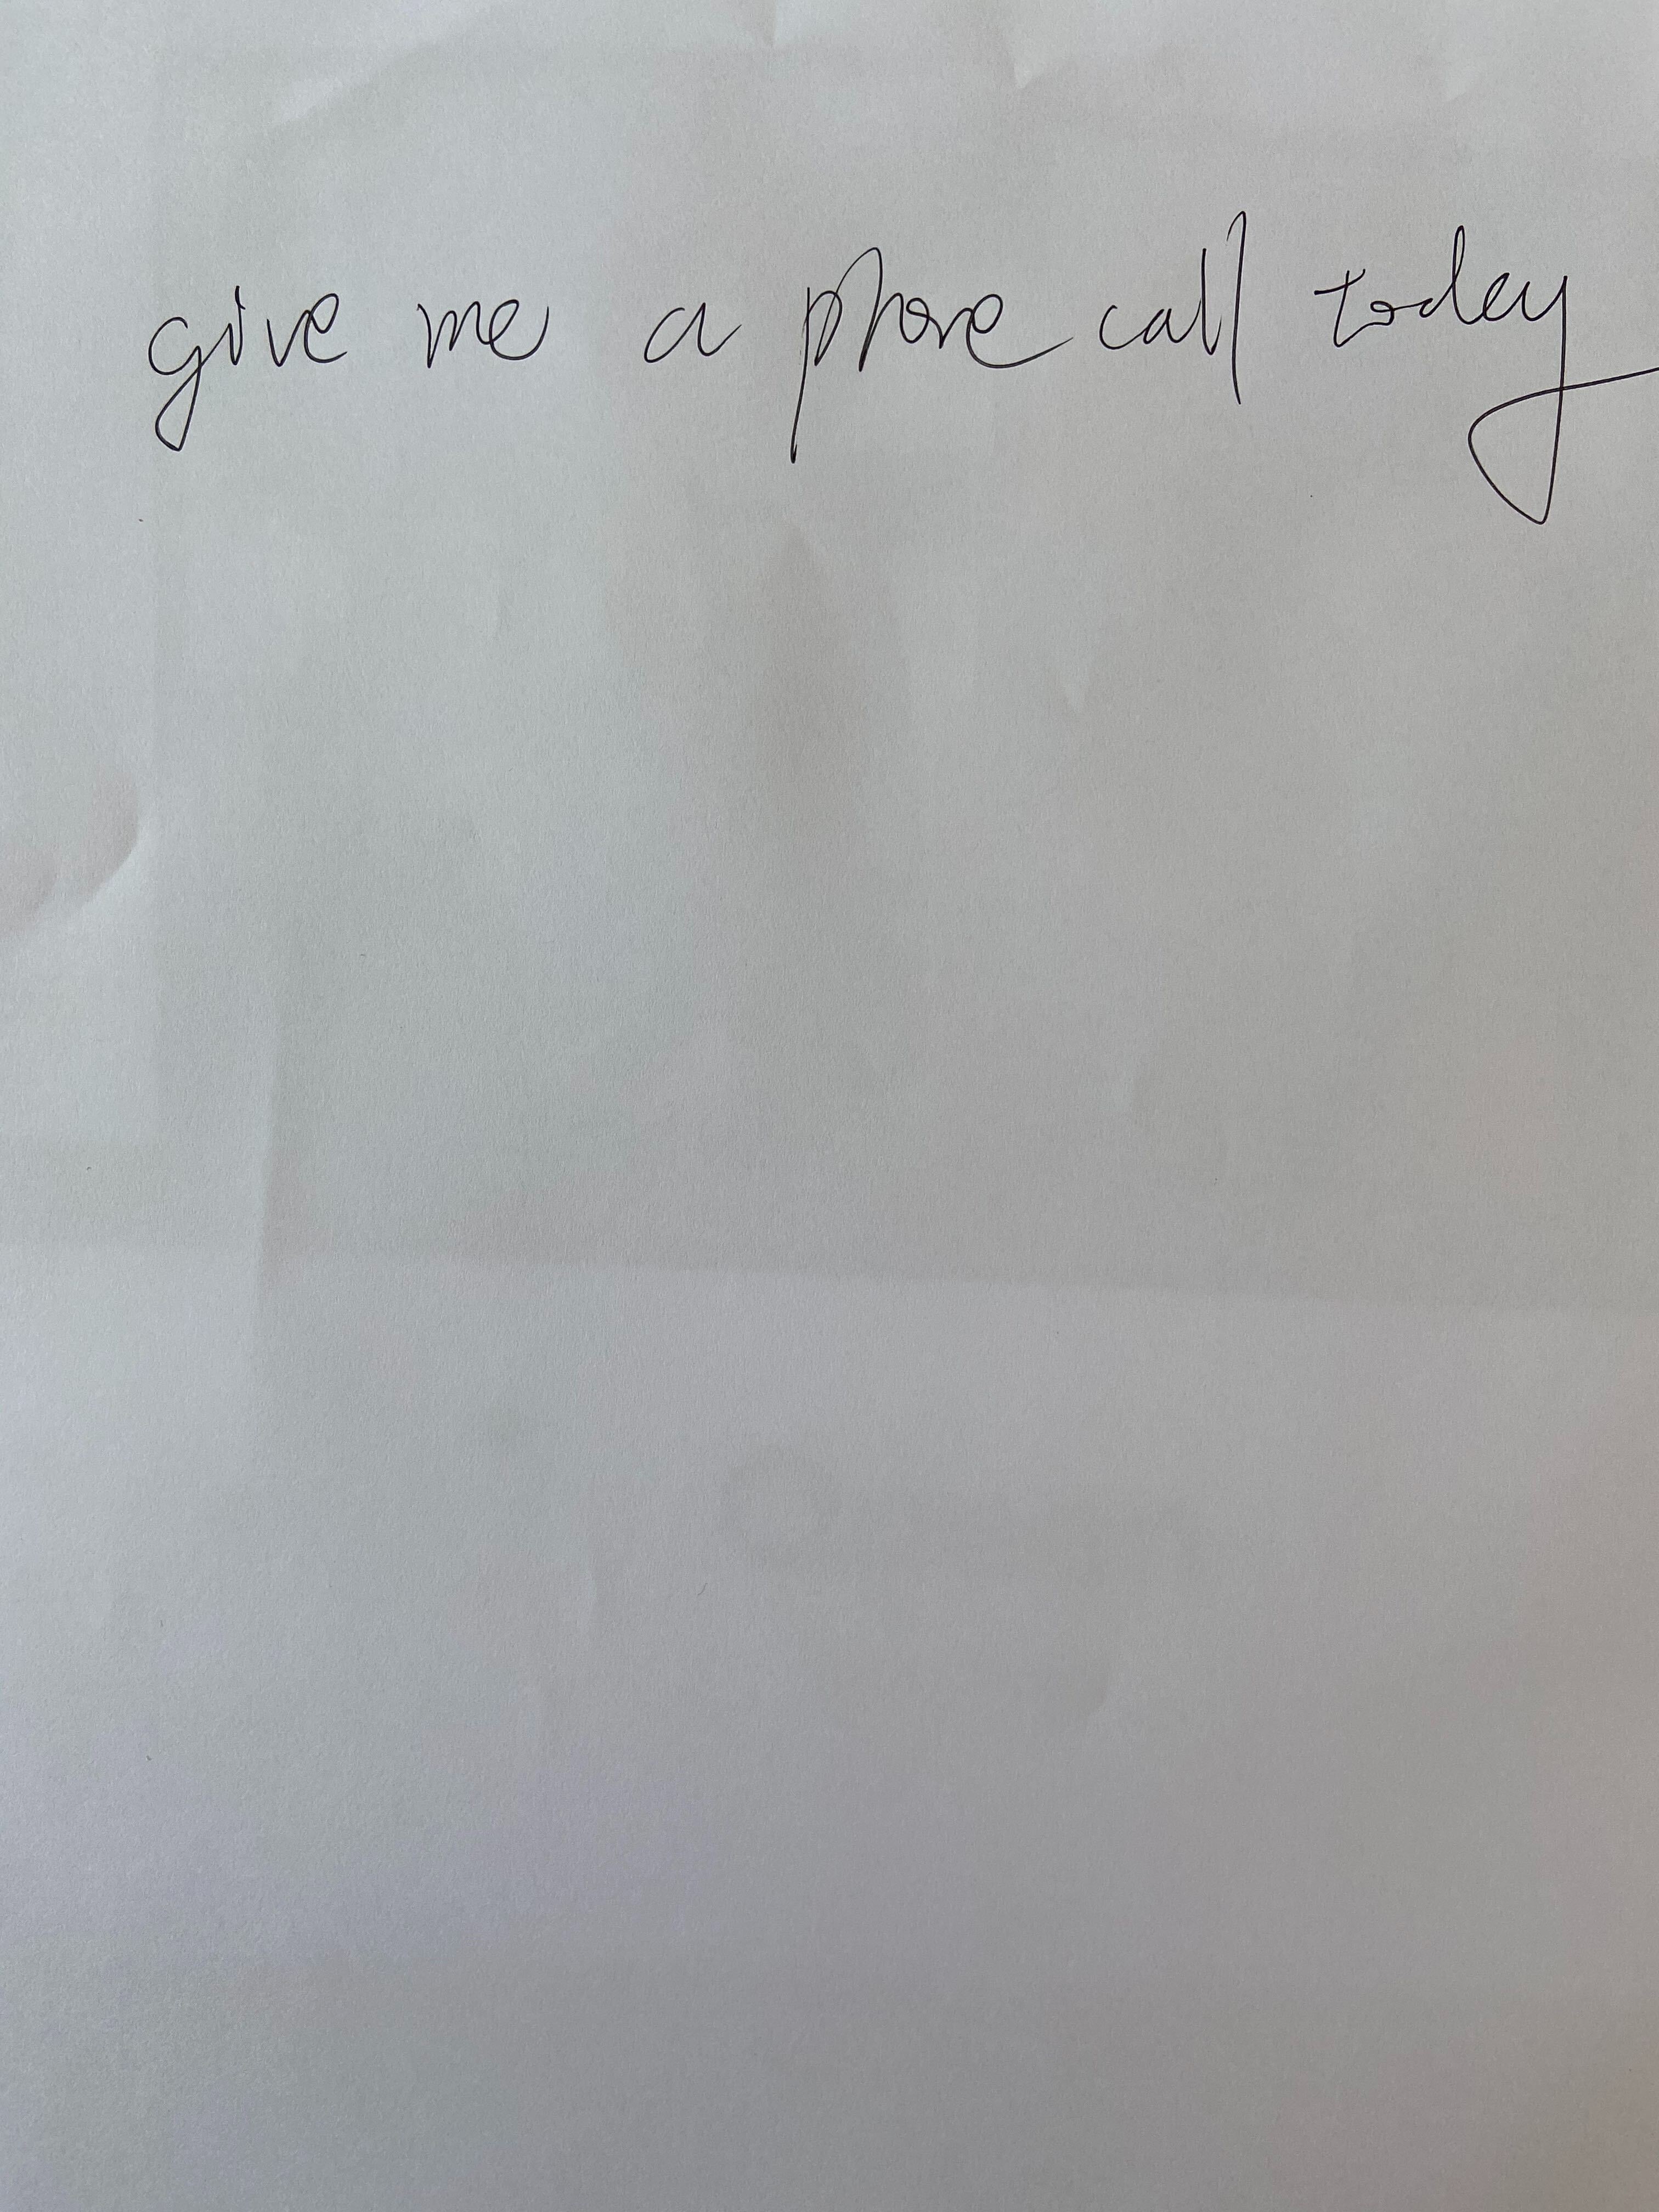 give me a phone call today